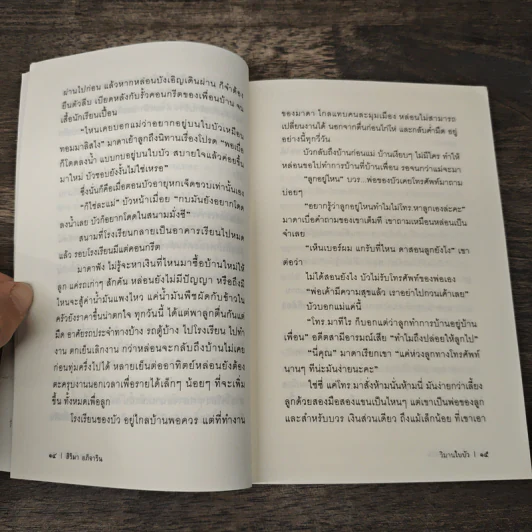 ผ่านไปก่อน แล้วหากหล่อนบังเอิญเดินผ่าน ก็จำต้อง
ยืนตัวลีบ เบียดหลังกับรั้วคอนกรีตของเพื่อนบ้าน จน
เสื้อนักเรียนเปื้อน
"ไหนเคยบอกแม่ว่าอยากอยู่บนใบบัวเหมือน
ทอมมาลิสไง" มาดาเย้าลูกถึงนิทานเรื่องโปรด "พอเบื่อ
ก็โดดลงน้ำ แบบกบอยู่บนใบบัว สบายใจแล้วค่อยขึ้น
มาใหม่ บัวชอบยังงั้นไม่ใช่เหรอ"
ซึ่งนั่นก็คือเมื่อตอนบัวอายุหกเจ็ดขวบเท่านั้นเอง
"ก็ใช่ละแม่" บัวหน้าเมื่อย "กบมันยังอยากโดด
ลงน้ำเลย บัวก็อยากโดดในสนามมั่งซี"
สนามที่โรงเรียนกลายเป็นอาคารเรียนไปหมด
แล้ว รอบโรงเรียนมีแต่คอนกรีต
มาดาฟัง ไม่รู้จะหาเงินที่ไหนมาซื้อบ้านใหม่ให้
ลูก แค่รถเก่าๆ สักคัน หล่อนยังไม่มีปัญญา หรือถึงมี
ไหนจะสู้ค่าน้ำมันแพงไหว แค่น้ำมันพืชผัดกับข้าวใน
ครัวยังราคาขึ้นน่าตกใจ ทุกวันนี้ ได้แต่พาลูกตื่นกันแต่
มืด อาศัยรถประจำทางบ้าง รถตู้บ้าง ไปโรงเรียน ไปทำ
งาน ตกเย็นเลิกงาน กว่าหล่อนจะกลับถึงบ้านไม่เคย
ก่อนทุ่มครึ่งไปได้ หลายเย็นต่ออาทิตย์หล่อนยังต้อง
ตะครุบงานนอกเวลาเพื่อรายได้เล็กๆ น้อยๆ ที่จะเพิ่ม
ขึ้น ทั้งหมดเพื่อลูก
โรงเรียนของบัว อยู่ไกลบ้านพอควร แต่ที่ทำงาน
๑๔ | สิริมา อภิจาริน
ของมาดา ไกลแทบคนละมุมเมือง หล่อนไม่สามารถ
เปลี่ยนงานได้ นอกจากตื่นก่อนไก่โห่ และกลับค่ำมืด อยู่
อย่างนี้ทุกวี่วัน
บัวกลับถึงบ้านก่อนแม่ บ้านเงียบๆ ไม่มีใคร ทำให้
หล่อนขอไปทำการบ้านที่บ้านเพื่อน รอจนกว่าแม่จะมา
"ลูกอยู่ไหน" บวร...พ่อของบัวเคยโทรศัพท์มาถาม
บ่อยๆ
"อยากรู้ว่าลูกอยู่ไหนทำไมไม่โทร.หาลูกเองล่ะคะ"
มาดาเบื่อคำถามของเขาเต็มที เขาถามเหมือนหล่อนเป็น
จำเลย
"เห็นเบอร์ผม แกรับที่ไหน ดาสอนลูกยังไง" เขา
ต่อว่า
ไม่ได้สอนยังไง บัวไม่รับโทรศัพท์ของพ่อเอง
"พ่อเค้ามีความสุขแล้ว เราอย่าไปกวนเค้าเลย"
บัวบอกแม่แค่นี้
"โทร. มาทีไร ก็บอกแต่ว่าลูกทำการบ้านอยู่บ้าน
เพื่อน" อดีตสามีอารมณ์เสีย "ทำไมถึงปล่อยให้ลูกไป"
"นี่คุณ" มาดาเรียกเขา "แค่ห่วงลูกทางโทรศัพท์
นานๆ ทีน่ะมันง่ายนะคะ"
ใช่ซี แค่โทร. มาสั่งห้ามนั่นห้ามนี่ มันง่ายกว่าเลี้ยง
ลูกด้วยสองมือสองแขนเป็นไหนๆ แต่เขาเป็นพ่อของลูก
และสำหรับบวร เงินส่วนเดียว ถึงแม้เล็กน้อย ที่เขาเอา
วิมานใบบัว | ๑๕